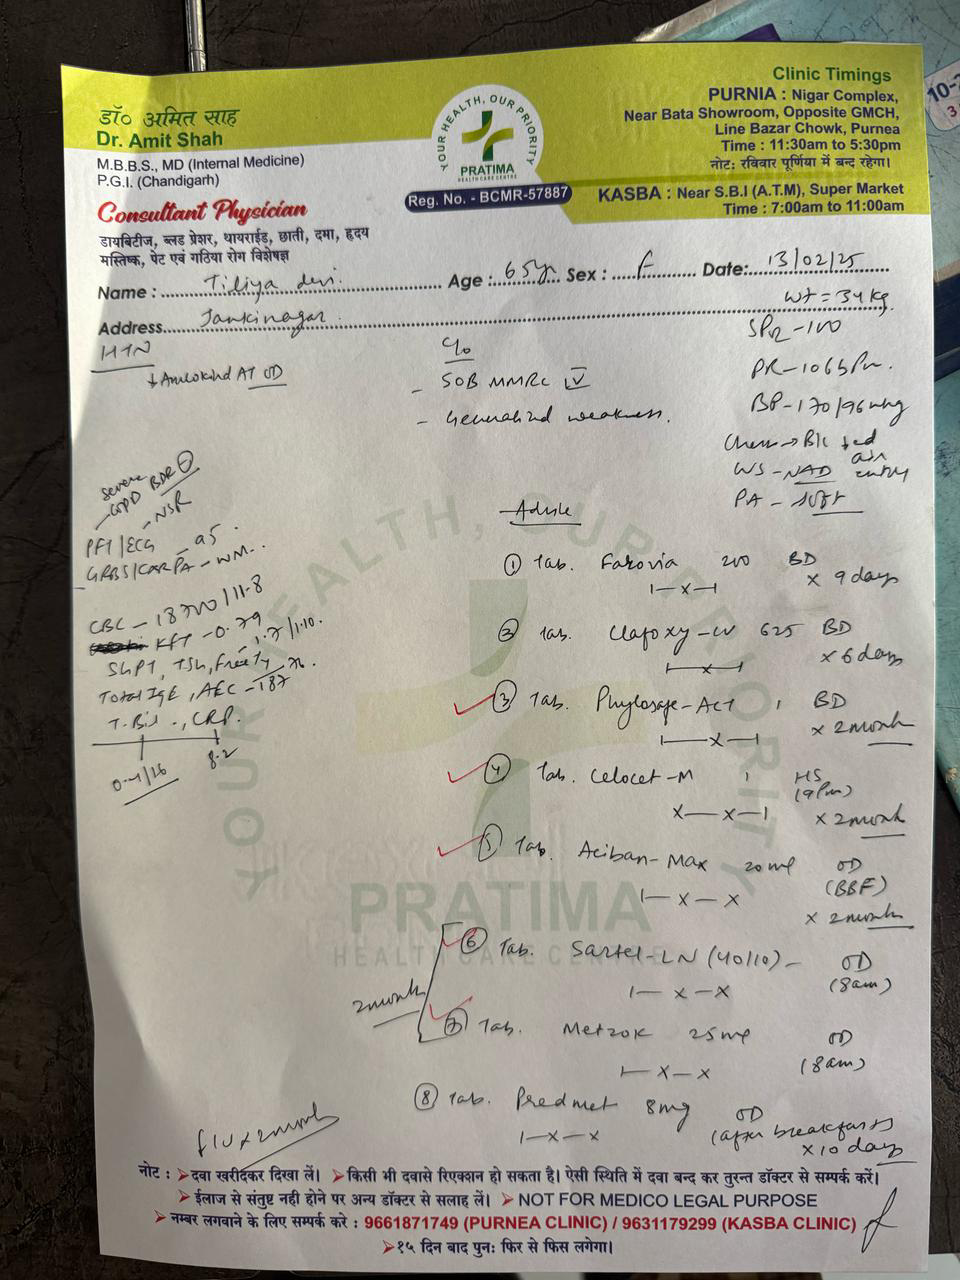 डॉ० अमित साह
Dr. Amit Shah
M.B.B.S., MD (Internal Medicine)
P.G.I. (Chandigarh)
Consultant Physician
डायबिटीज, ब्लड प्रेशर, थायराईड, छाती, दमा, हृदय
मस्तिष्क, पेट एवं गठिया रोग विशेषज्ञ
YOUR HEALTH, OUR PRIORITY
PRATIMA
HEALTH CARE CENTRE
Reg. No. - BCMR-57887
Clinic Timings
PURNIA : Nigar Complex,
Near Bata Showroom, Opposite GMCH,
Line Bazar Chowk, Purnea
Time : 11:30am to 5:30pm
नोट: रविवार पूर्णिया में बन्द रहेगा।
KASBA : Near S.B.I (A.T.M), Super Market
Time : 7:00am to 11:00am
Name : Tiliya devi. Age : 65yr Sex : F Date: 13/02/25
Address Jankinagar.
Wt = 34 kg
SPO2 - 100
PR - 106 bpm.
BP - 170/96 mmHg
Chest → B/L ↓ed
air entry
- NAD
PA - soft
HTN
Amlokind AT OD
c/o
- SOB MMRC IV
- Generalized weakness.
severe
BDR
- NSR
PFT/ECG
CBC - 18700/11.8
KFT - 0.79
SGPT, TSH, Free T4
1.7/1.10
Total IgE, AEC - 187
T. Bil., CRP.
8.2
Advice
① Tab. Farovia 200 BD
1—x—1 x 9 days
② Tab. Clafoxy-CV 625 BD
1—x—1 x 6 days
③ Tab. Phylosafe-ACT 1 BD
1—x—1 x 2 month
④ Tab. Celocet-M 1 HS
(9pm)
x—x—1 x 2 month
⑤ Tab. Aciban-Max 20 mg OD
(BBF)
1—x—x x 2 month
⑥ Tab. Sartel-LN (40/10) - OD
(8am)
1—x—x
2 month
⑦ Tab. Metzok 25 mg OD
(8am)
1—x—x
⑧ Tab. Predmet 8mg OD
(after breakfast)
1—x—x x 10 days
f/u x 2 month
YOUR HEALTH, OUR PRIORITY
PRATIMA
HEALTH CARE CENTRE
नोट : ➤दवा खरीदकर दिखा लें। ➤किसी भी दवासे रिएक्शन हो सकता है। ऐसी स्थिति में दवा बन्द कर तुरन्त डॉक्टर से सम्पर्क करें।
➤ईलाज से संतुष्ट नही होने पर अन्य डॉक्टर से सलाह लें। ➤ NOT FOR MEDICO LEGAL PURPOSE
➤नम्बर लगवाने के लिए सम्पर्क करे : 9661871749 (PURNEA CLINIC) / 9631179299 (KASBA CLINIC)
➤१५ दिन बाद पुन: फिर से फिस लगेगा।